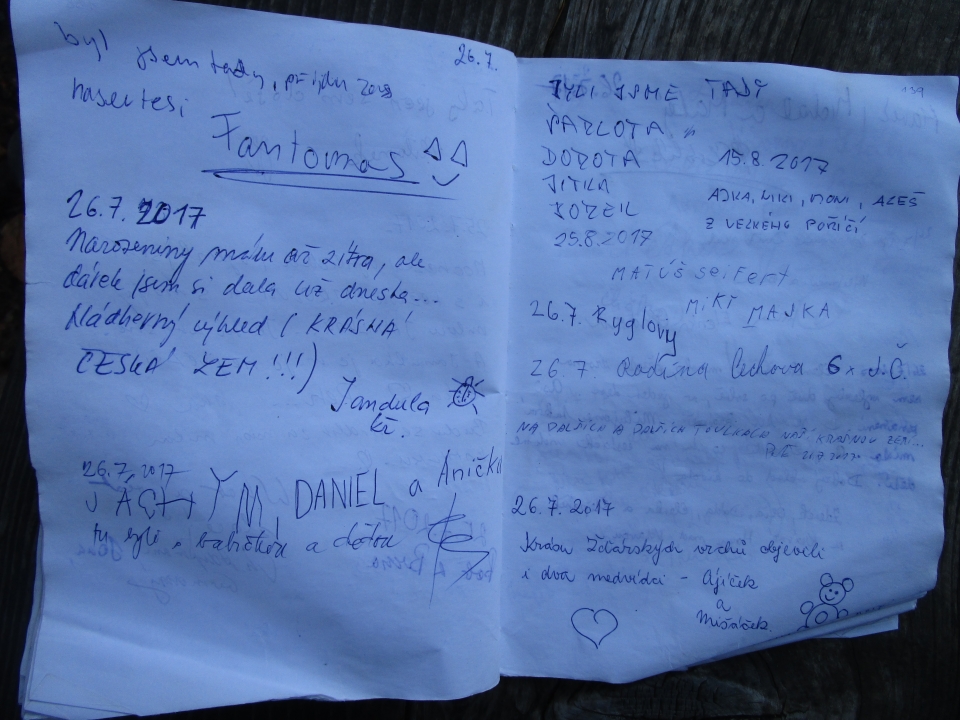 26.7.
byl jsem tady, přijdu zas
naseutesi
Fantomas
26.7.2017
Narozeniny mám až zítra, ale
dárek jsem si dala už dneska...
Nádherný výhled (KRÁSNÁ
ČESKÁ ZEM!!!)
Jandula
kř.
26.7.2017
JÁCHYM DANIEL a Anička
tu byli s babičkou a dědou
139
BYLI JSME TADY
ŠARLOTA
DOROTA
JITKA
25.8.2017
15.8.2017
AJKA, MIKI, MONI, ALEŠ
Z VELKÉHO POŘÍČÍ
MATÚŠ Seifert
MIKI MAJKA
26.7. Ryglovy
26.7 Rodina Cechova 6x J.Č.
NA DALŠÍCH A DALŠÍCH TOULKÁCH NAŠÍ KRÁSNOU ZEMÍ...
26.7.2017
Krásu Žďárských vrchů objevili
i dva medvídci - Ájíček
a
Mišáček.